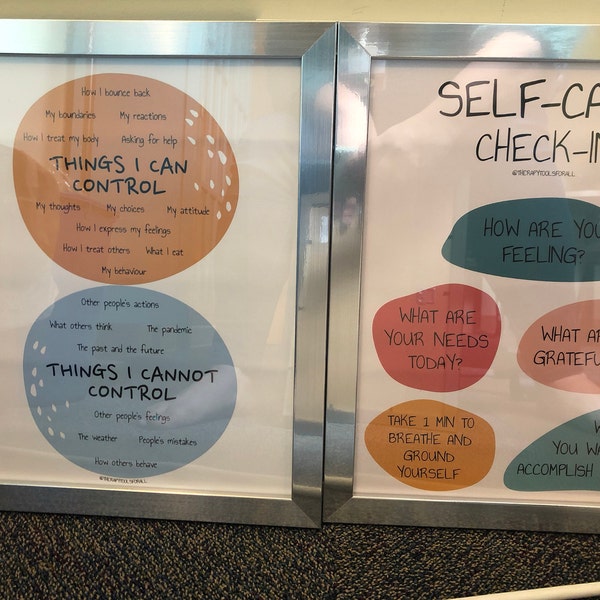 How I bounce back
My boundaries My reactions
How I treat my body Asking for help
THINGS I CAN
CONTROL
My thoughts My choices My attitude
How I express my feelings
How I treat others What I eat
My behaviour
Other people's actions
What others think The pandemic
The past and the future
THINGS I CANNOT
CONTROL
Other people's feelings
The weather People's mistakes
How others behave
@THERAPYTOOLSFORALL
SELF-CA
CHECK-IN
@THERAPYTOOLSFORALL
HOW ARE YOU
FEELING?
WHAT ARE
YOUR NEEDS
TODAY?
WHAT AR
GRATEFU
TAKE 1 MIN TO
BREATHE AND
GROUND
YOURSELF
W
YOU WA
ACCOMPLISH